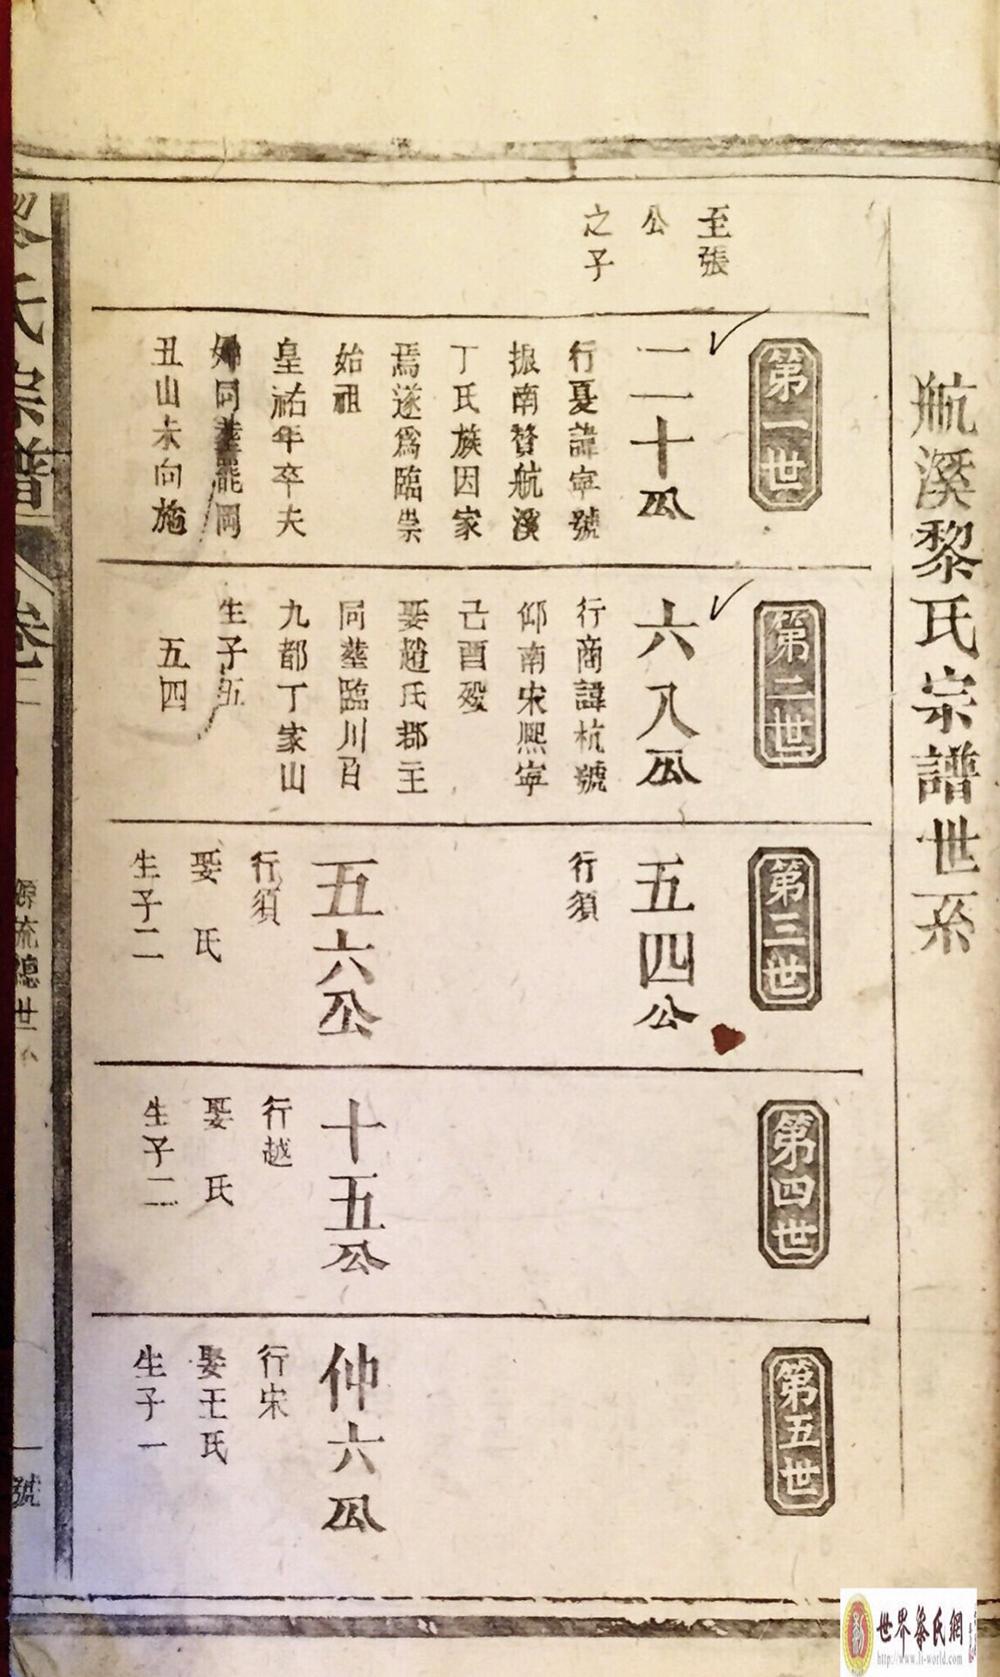 航溪黎氏宗譜世系
至張
公
之子
第一世
二十公
行夏諱寧號
振南贅航溪
丁氏族因家
焉遂為臨崇
始祖
皇祐年卒夫
婦同塟罷岡
丑山未向施
第二世
六八公
行商諱杭號
仰南宋熙寧
己酉歿
娶趙氏郡主
同塟臨川百
九都丁家山
生子五
五四
第三世
五四公
行須
五六公
行須
娶 氏
生子二
第四世
十五公
行越
娶 氏
生子二
第五世
仲六公
行宋
娶王氏
生子一
黎氏宗譜 卷
源流總世系
一號
世界黎氏網
http://www.li-world.com